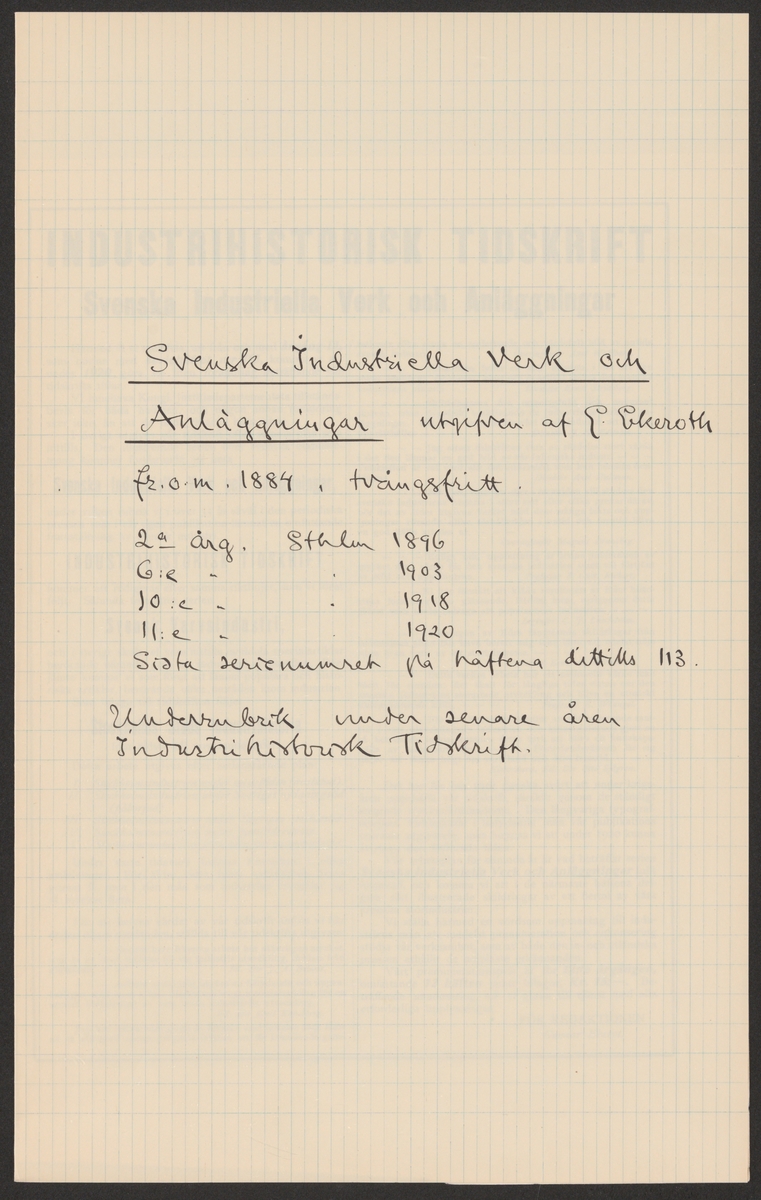 INDUSTRIHISTORISK TIDSKRIFT
Svenska Industriella Verk och Anläggningar
Svenska Industriella Verk och
Anläggningar utgifven af G. Ekeroth
fr.o.m. 1884, tvångsfritt.
2a årg. Sthlm 1896
6:e " " 1903
10:e " " 1918
11:e " " 1920
Sista serienumret på häftena dittills 113.
Underrubrik under senare åren
Industrihistorisk Tidskrift.